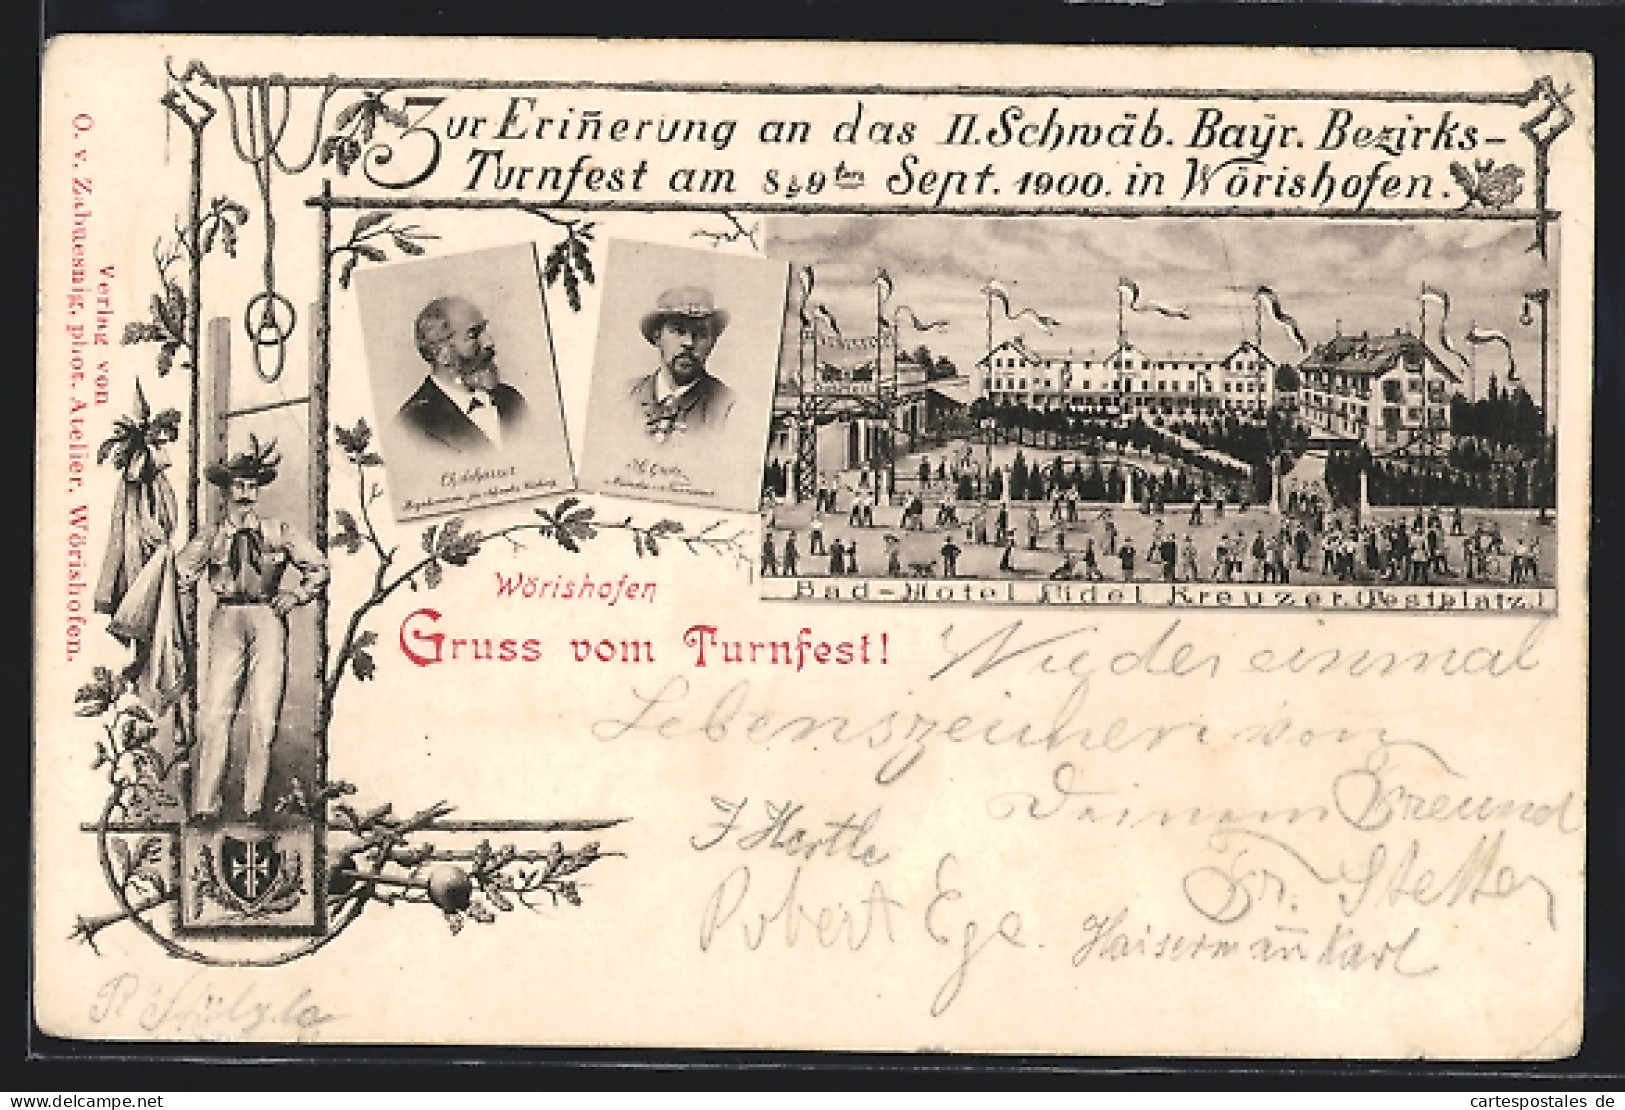 Zur Eriñerung an das II. Schwäb. Bayr. Bezirks-
Turnfest am 8 & 9ten Sept. 1900. in Wörishofen.
Verlag von
O. v. Zabuesnig, phot. Atelier, Wörishofen.
Wörishofen
Gruss vom Turnfest!
Bad-Hotel Fidel Kreuzer. (Festplatz.)
Wieder einmal
Lebenszeichen von
Deinem Freund
Fr. Stetter
J Hertle
Robert Ege.
Kaisermañ Karl
cartespostales de
www.cartespostales.de